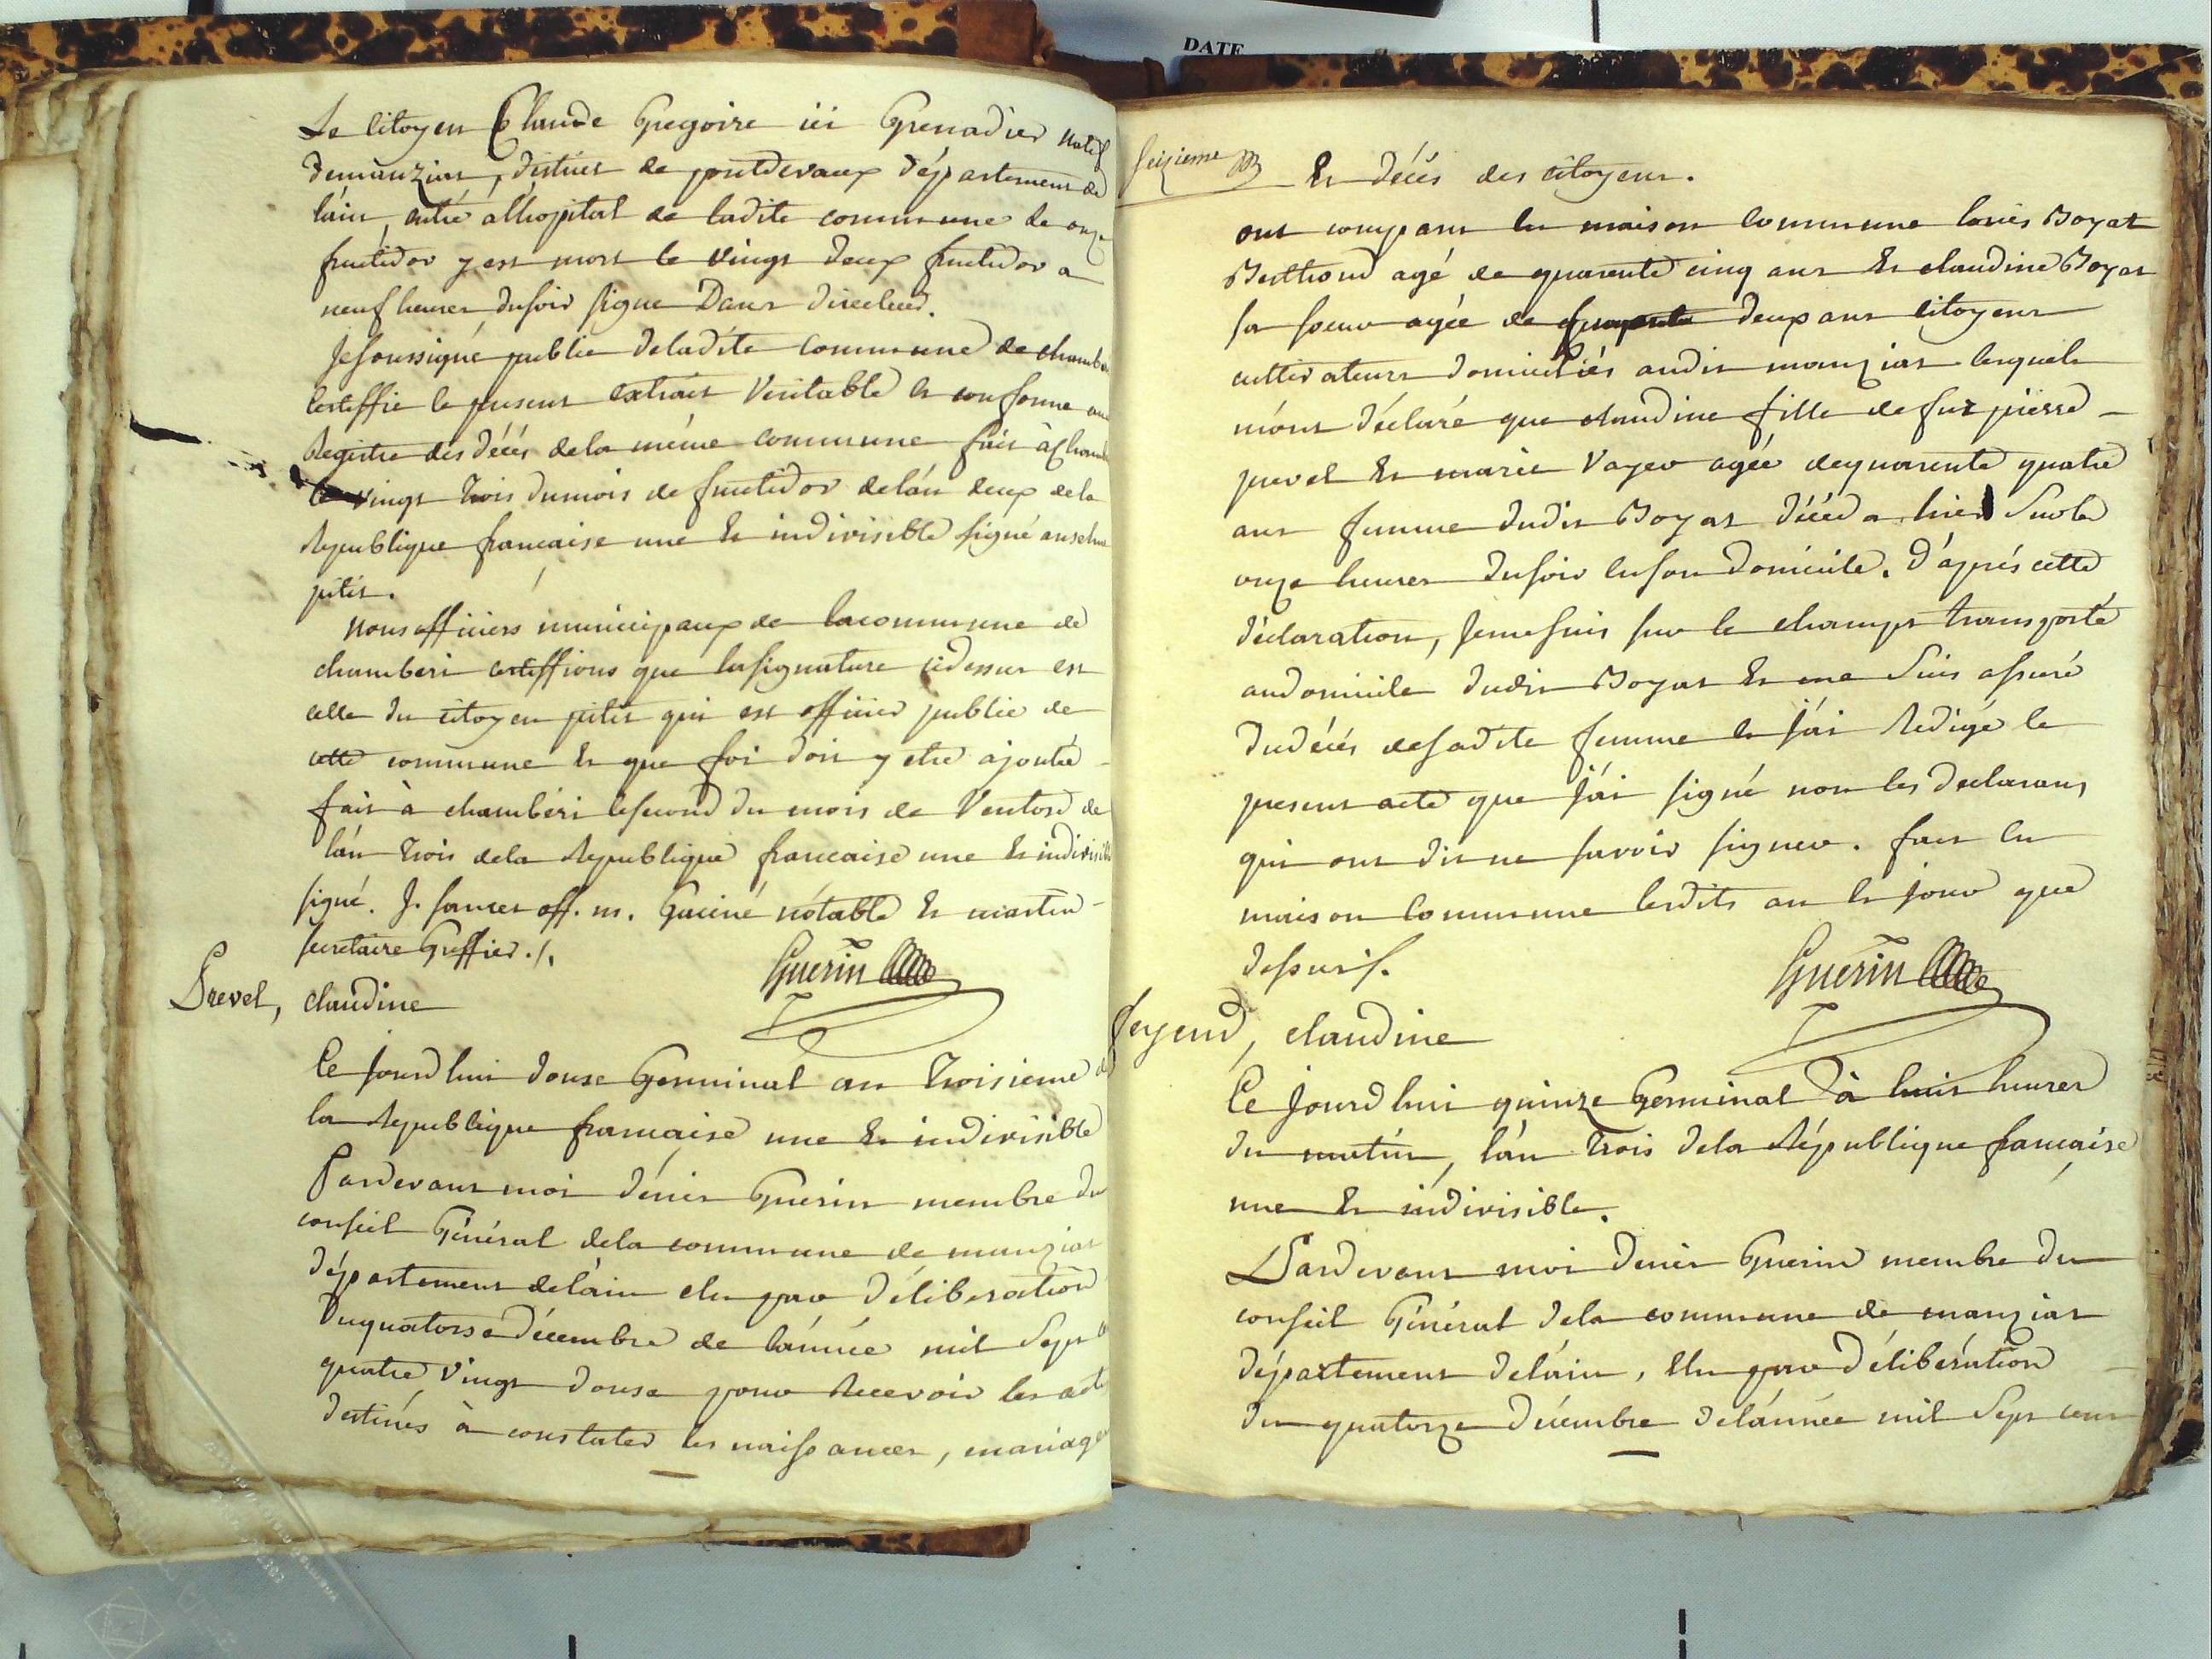 Le citoyen Claude Gregoire ici Grenadier natif
demanziat, district de pontdevaux département de
l'ain, entré alhopital de ladite commune le onze
fructidor y est mort le vingt deux fructidor a
neuf heures dusoir signe Dans directeur.
Je soussigné public deladite commune de chamberi
certiffie le present extrait veritable et conforme au
Registre des décés dela même commune fait à chamberi
le vingt trois dumois de fructidor delán deux dela
Republique francaise une et indivisible signé anselme
petit.
Nous officiers municipaux de lacommune de
chamberi certiffions que lasignature cidessus est
celle du citoyen petit qui est officier public de
cette commune et que foi doit y etre ajoutée
fait à chambéri lesecond du mois de Ventose de
lán trois dela Republique francaise une et indivisible
signé. J. off. m. notable et martin
secretaire Greffier ./.
Guerin
Prevel, claudine
Ce jourdhui douse Germinal an troisieme de
la Republique francaise une et indivisible
Pardevant moi dénis Guérin membre du
conseil Général dela commune de manziat
département deláin elu par déliberation
duquatorse décembre de l'année mil sept cent
quatre vingt douse pour recevoir les actes
destinés à constater les naissances, mariages
DATE
seizieme
Et décés des citoyens.
ont comparu en maison commune Boyat
agé de quarente cinq ans et claudine Boyat
sa soeur agée de quarente deux ans citoyens
cultivateurs domiciliés audit manziat lesquels
mónt déclaré que claudine fille de fut pierre
prevel et marie vayer agée dequarente quatre
ans femme dudit Boyat décéda hier sur les
onze heures dusoir en son domicile. D'aprés cette
déclaration, jemesuis sur le champs transporté
audomicile dudit Boyat et me suis assuré
dudécés desadite femme et jái redigé le
present acte que jái signé non les declarans
qui ont dit ne savoir signer. fait en
maison commune lesdits an et jour que
dessus.
Guerin
feyeud, claudine
Ce jourdhui quinze Germinal à huit heures
du matin, lán trois dela République francaise
une et indivisible.
Pardevant moi denis Guerin membre du
conseil Général dela commune de manziat
département deláin, elu par déliberation
du quatorze décembre delánnée mil sept cent